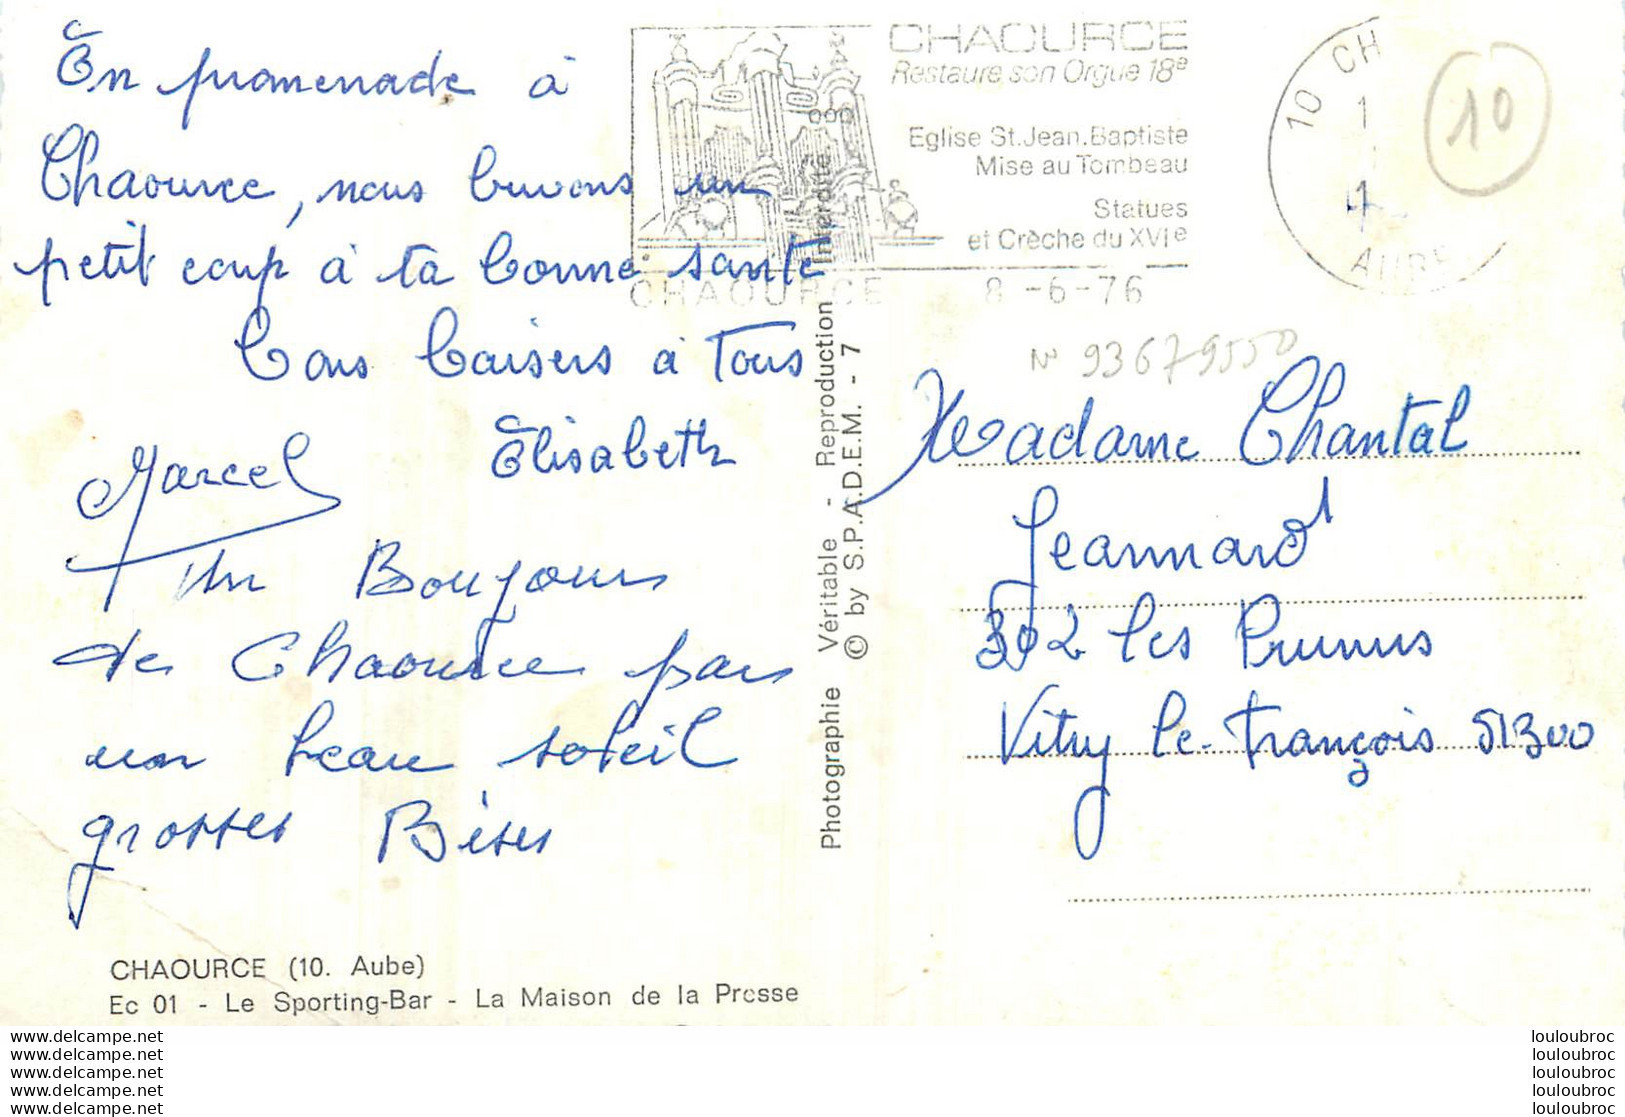 En promenade à
Chaource, nous buvons un
petit coup à ta bonne santé
bons baisers à Tous
Elisabeth
Marcel
Un Boujour
de Chaource par
un beau soleil
grosses Bises
CHAOURCE (10. Aube)
Ec 01 - Le Sporting-Bar - La Maison de la Presse
CHAOURCE
Restaure son Orgue 18e
Eglise St.Jean.Baptiste
Mise au Tombeau
Statues
et Crèche du XVIe
CHAOURCE 8-6-76
10 CH
AUBE
10
Photographie Véritable - Reproduction Interdite
© by S.P.A.D.E.M. - 7
N° 93679550
Madame Chantal
Jeannard
302 les Prunus
Vitry le-François 51300
www.delcampe.net
www.delcampe.net
www.delcampe.net
www.delcampe.net
www.delcampe.net
louloubroc
louloubroc
louloubroc
louloubroc
louloubroc